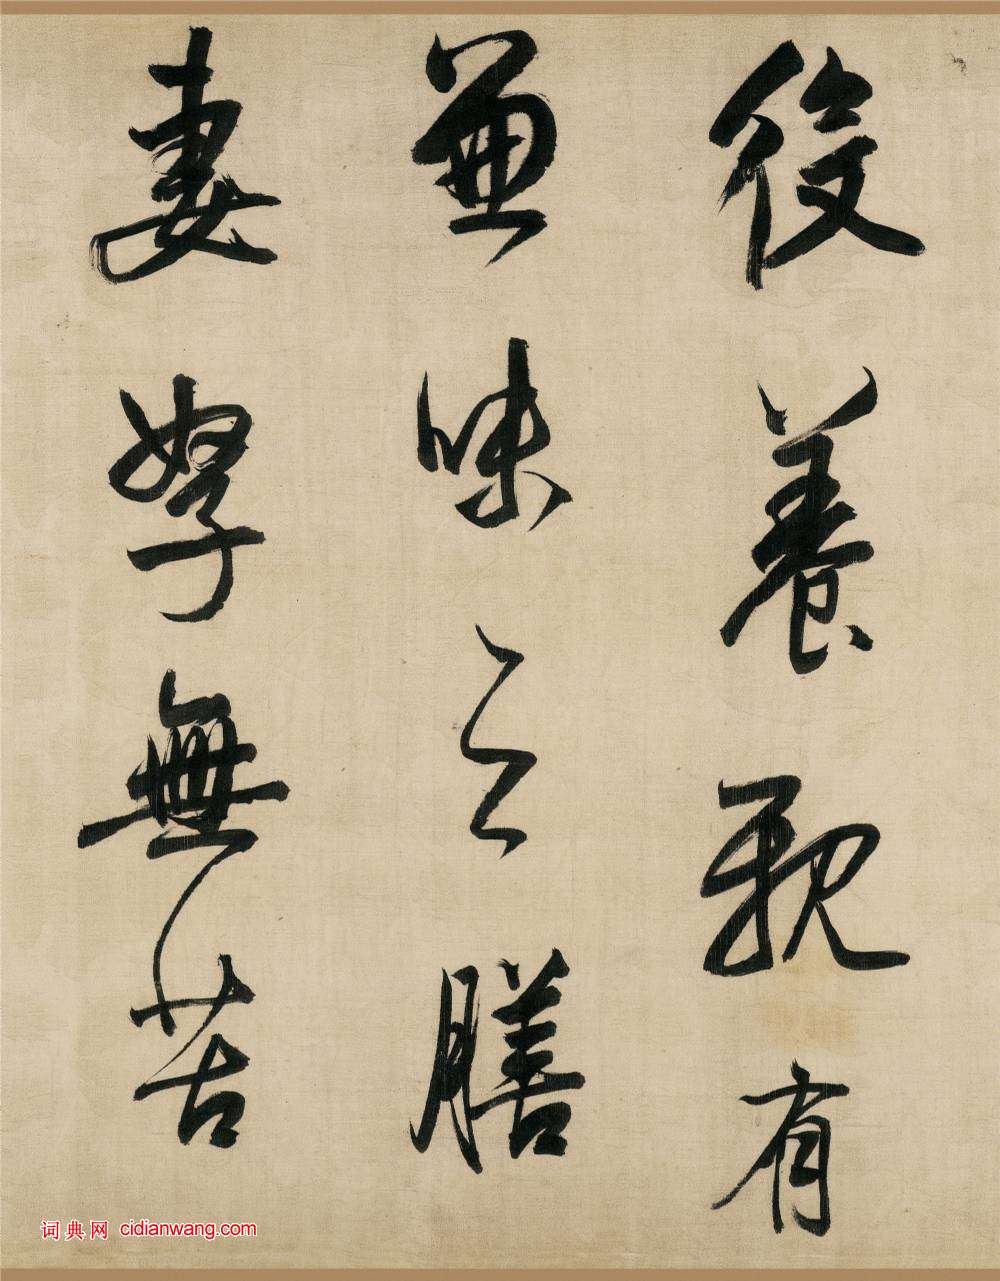 役養親有
兼味之膳
妻孥無苦
词典网 cidianwang.com